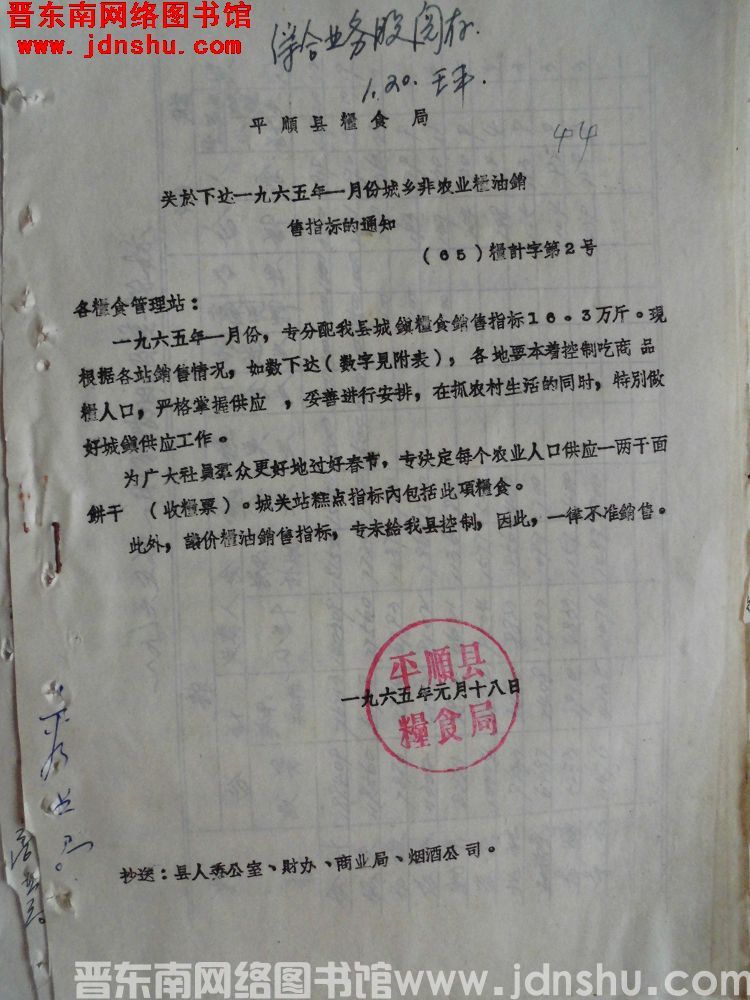 晋东南网络图书馆
www.jdnshu.com
综合业务股阅存.
1.20.
平順县糧食局
44
关於下达一九六五年一月份城乡非农业糧油銷
售指标的通知
(65)糧計字第2号
各糧食管理站：
一九六五年一月份，专分配我县城鎭糧食銷售指标16。3万斤。現
根据各站銷售情况，如数下达(数字見附表)，各地要本着控制吃商品
糧人口，严格掌握供应，妥善进行安排，在抓农村生活的同时，特別做
好城鎭供应工作。
为广大社員羣众更好地过好春节，专决定每个农业人口供应一两干面
餅干 (收糧票)。城关站糕点指标內包括此項糧食。
此外，議价糧油銷售指标，专未給我县控制，因此，一律不准銷售。
平順县
一九六五年元月十八日
糧食局
抄送：县人委公室、財办、商业局、烟酒公司。
晋东南网络图书馆www.jdnshu.com